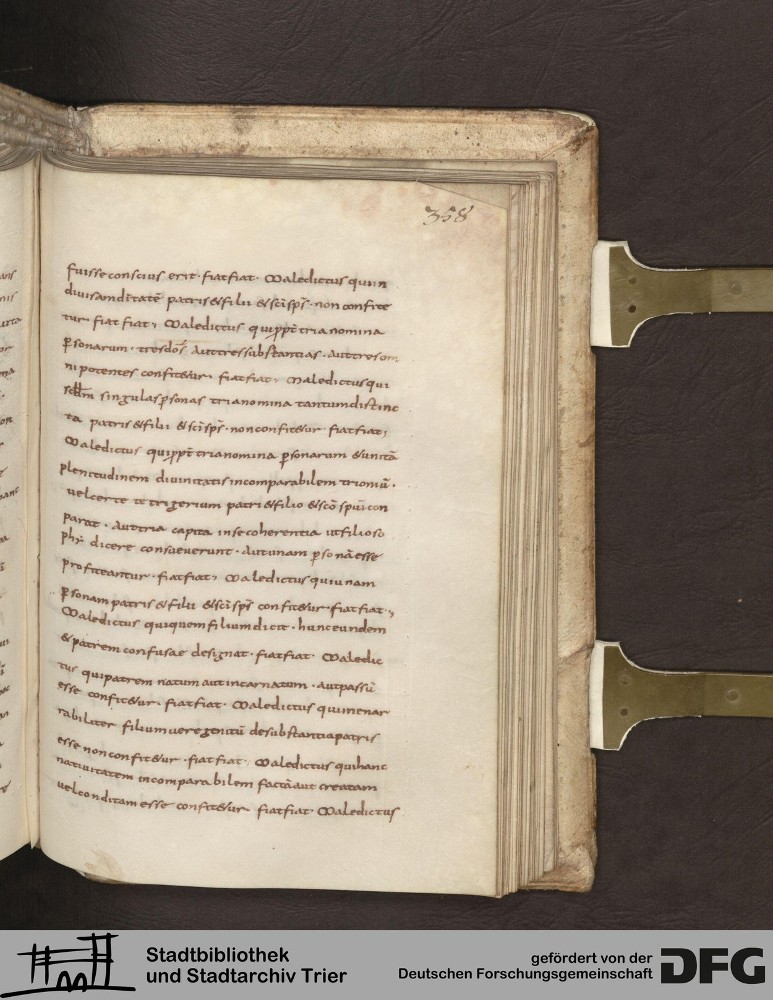 358
fuisse conscius erit · fiat fiat · Maledictus qui un
divisam ditatē patris & filii & sci sps̄ · non confite
tur fiat fiat ; Maledictus qui ppt tria nomina
p̱sonarum · tres dos̄ aut tres substantias · aut tres om
nipotentes confit&ur · fiat fiat · maledictus qui
scdm singulas p̱sonas tria nomina tantum distinc
ta patris & filii & sci sps̄ · non confit&ur fiat fiat ;
Maledictus qui ppt tria nomina p̱sonarum & unitā
plenitudinem divinitatis incomparabilem trioniū ·
vel certe te trigerium patri & filio & scō spui con
parat · aut tria capita in se coherentia ut filioso
phi dicere consueverunt · aut unam p̱sonā esse
profiteantur · fiat fiat ; Maledictus qui unam
p̱sonam patris & filii & sci sps̄ confit&ur · fiat fiat · ;
Maledictus qui quem filium dicit · hunc eundem
& patrem confusae designat · fiat fiat · Maledic
tus qui patrem natum aut incarnatum · aut passū
esse confit&ur · fiat fiat · Maledictus qui inenar
rabiliter filium vere genitū de substantia patris
esse non confit&ur · fiat fiat · Maledictus qui hanc
nativitatem incomparabilem factā aut creatam
vel conditam esse confit&ur fiat fiat · Maledictus
Stadtbibliothek
und Stadtarchiv Trier
gefördert von der
Deutschen Forschungsgemeinschaft
DFG